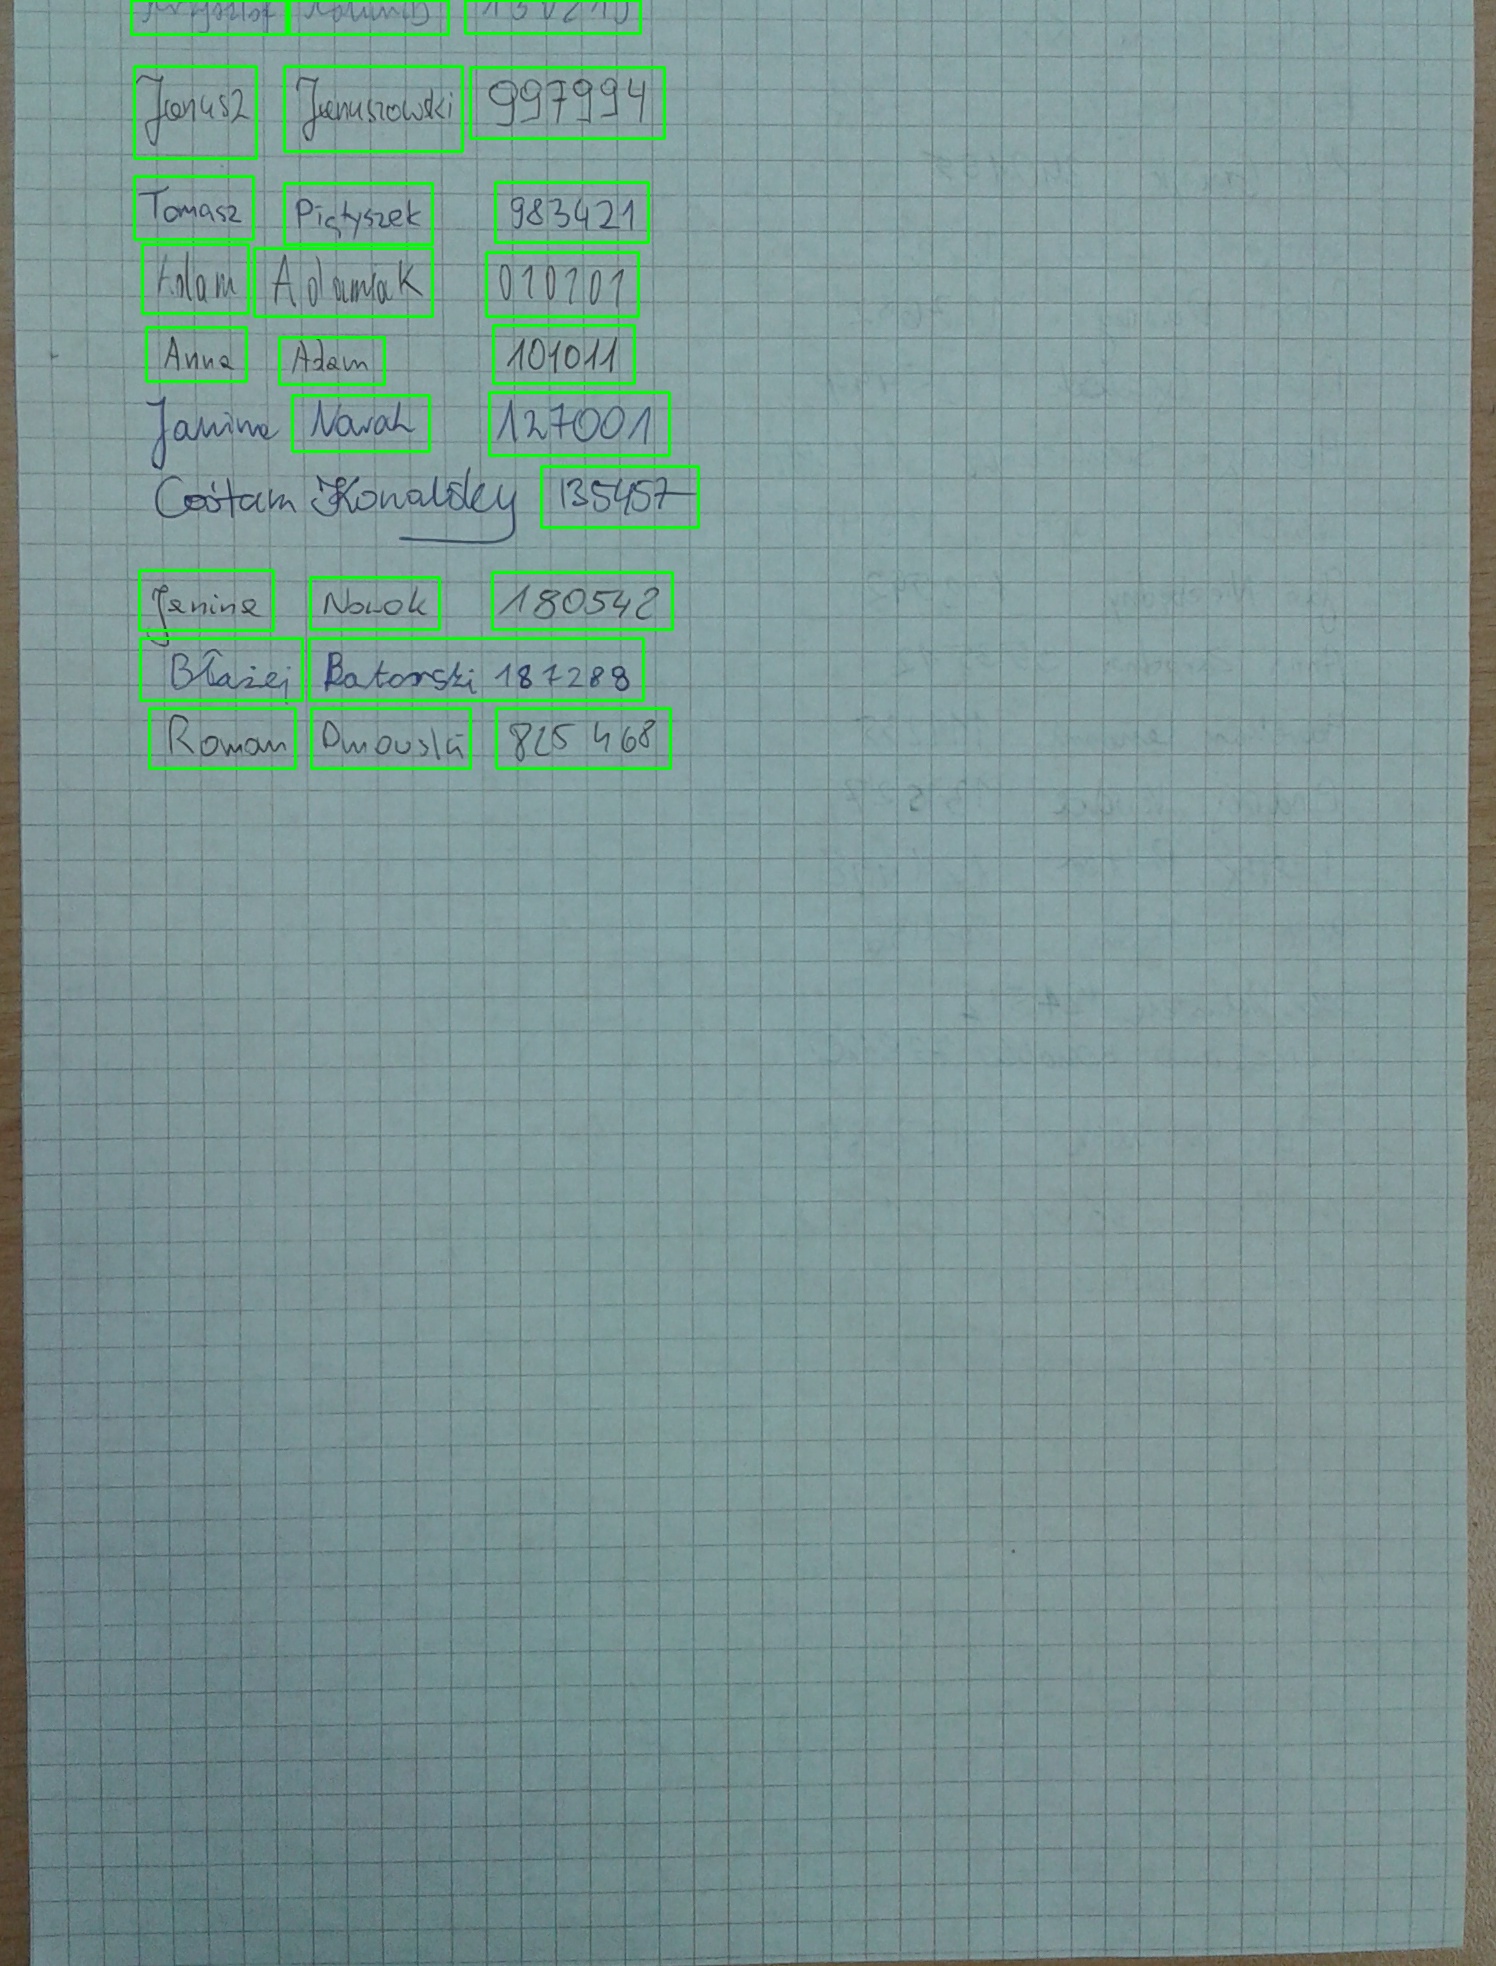 Janusz Januszowski 997994
Tomasz Piętyszek 983421
Adam Adamiak 010101
Anna Adam 101011
Janina Nawak 127001
Cośtam Kowalsky 135457
Janina Nowok 180542
Błażej Batorski 187288
Roman Dmowski 825 468